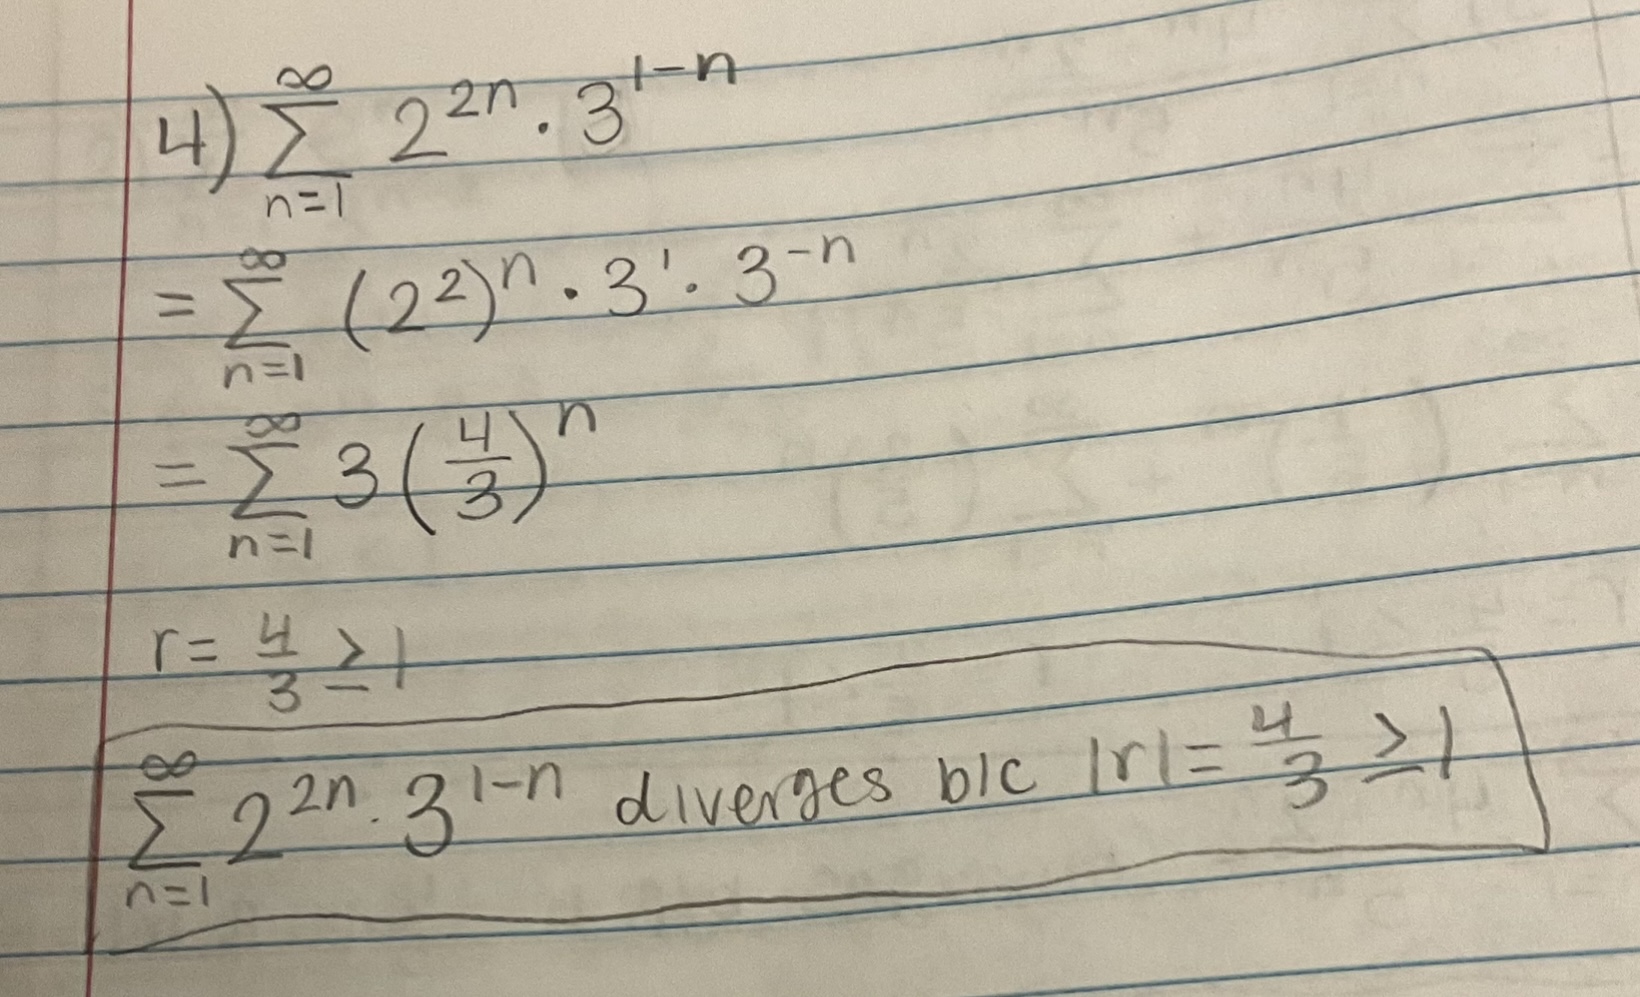 4) ∑_{n=1}^{∞} 2^{2n} · 3^{1-n}
= ∑_{n=1}^{∞} (2^2)^n · 3^1 · 3^{-n}
= ∑_{n=1}^{∞} 3(4/3)^n
r = 4/3 ≥ 1
∑_{n=1}^{∞} 2^{2n} · 3^{1-n} diverges b/c |r| = 4/3 ≥ 1